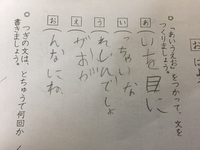 お は
○「あいうえお」をつかって、文を
つくりましょう。
あ いを目に
い っちゃいな
う れしんでしょ
え がおが
お んなにね
○つぎの文は、とちゅうで何回か
書きましょう。